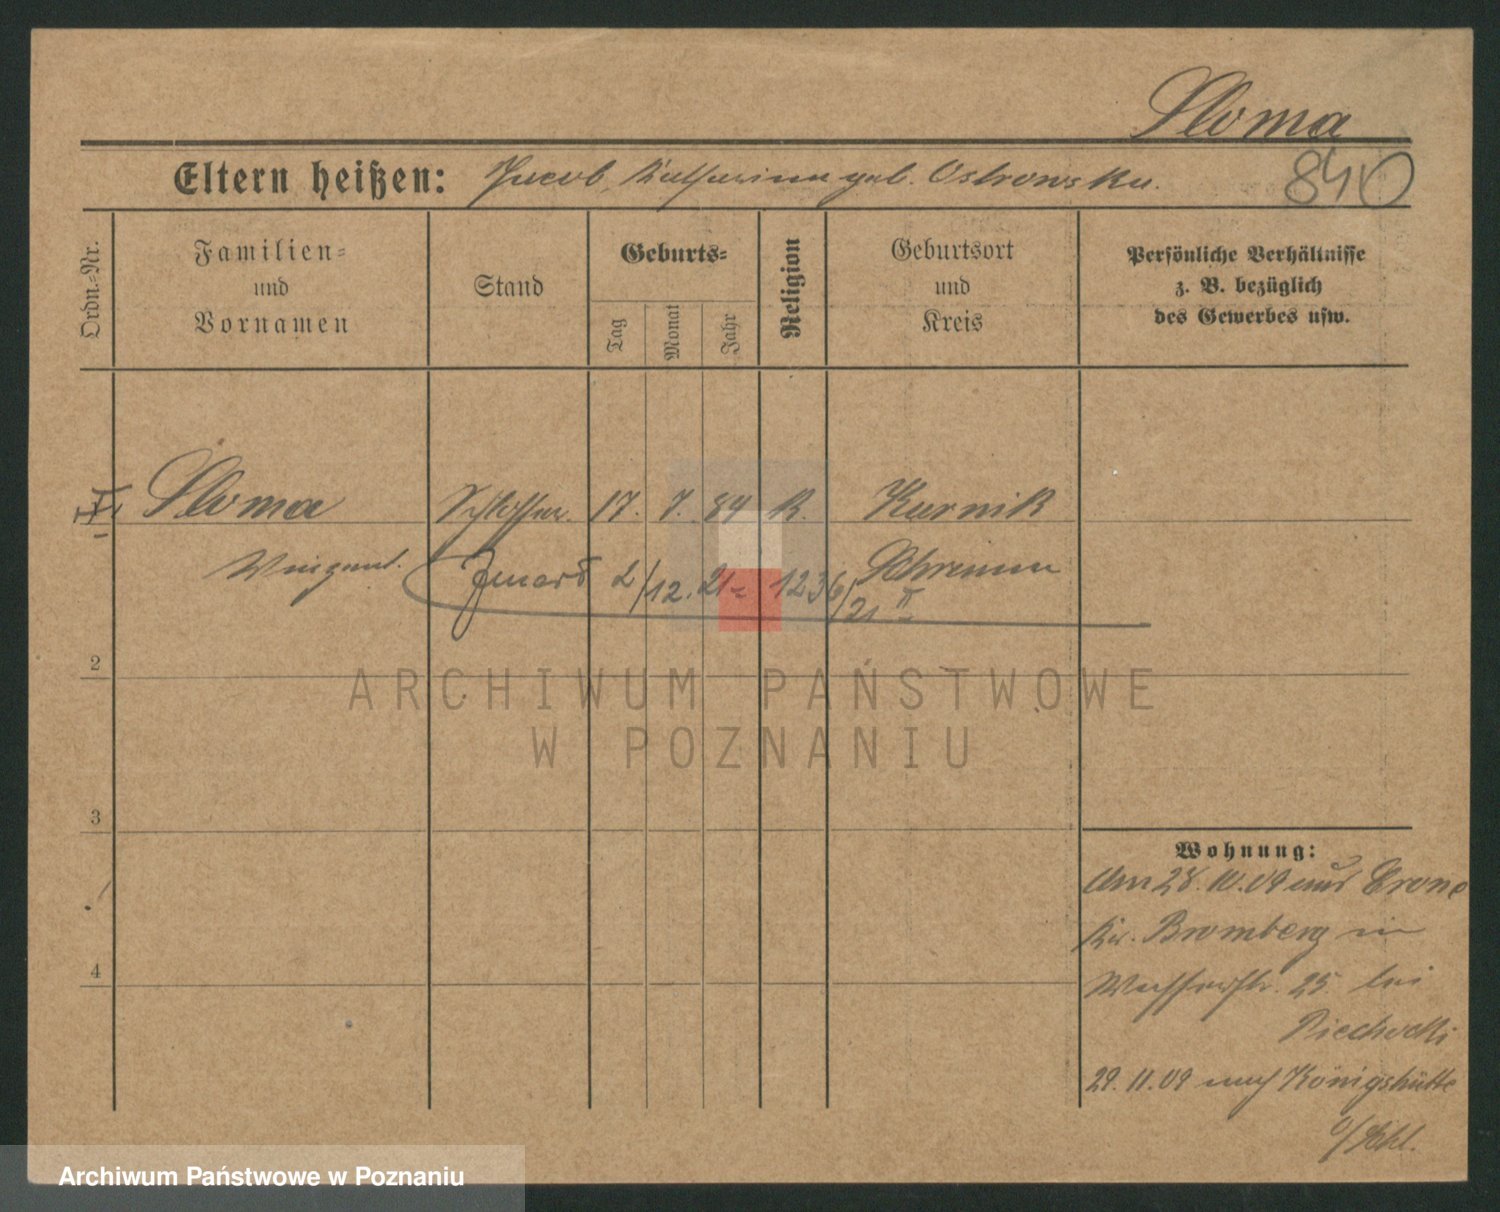 Sloma
840
Eltern heißen: Jacob, Katharina geb. Ostrowska.
Ordn.-Nr.
Familien-
und
Vornamen
Stand
Geburts-
Tag
Monat
Jahr
Religion
Geburtsort
und
Kreis
Persönliche Verhältnisse
z. B. bezüglich
des Gewerbes usw.
Sloma Schlosser. 17. 7. 84 K. Kurnik
Vinzent. 2/12. 21 1236/21 II Schrimm
2
3
4
Wohnung:
Am 28. 10. 09 aus Crone
Kr. Bromberg in
Wasserstr. 25 bei
Piechocki
29. 11. 09 nach Königshütte
O/Schl.
ARCHIWUM PAŃSTWOWE
W POZNANIU
Archiwum Państwowe w Poznaniu